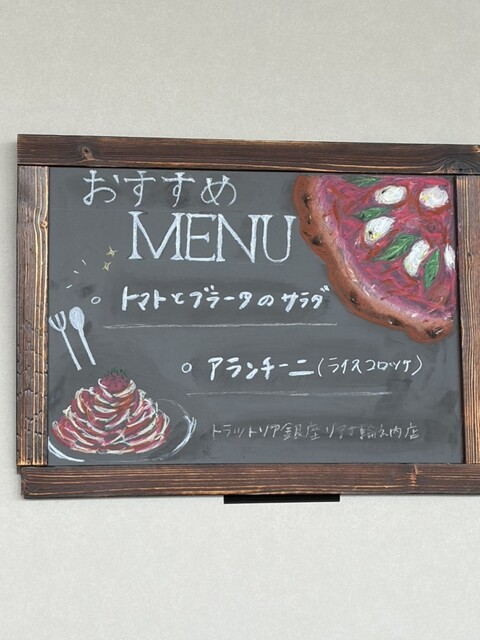 おすすめ
MENU
トマトとブラータのサラダ
アランチーニ(ライスコロッケ)
トラットリア銀座